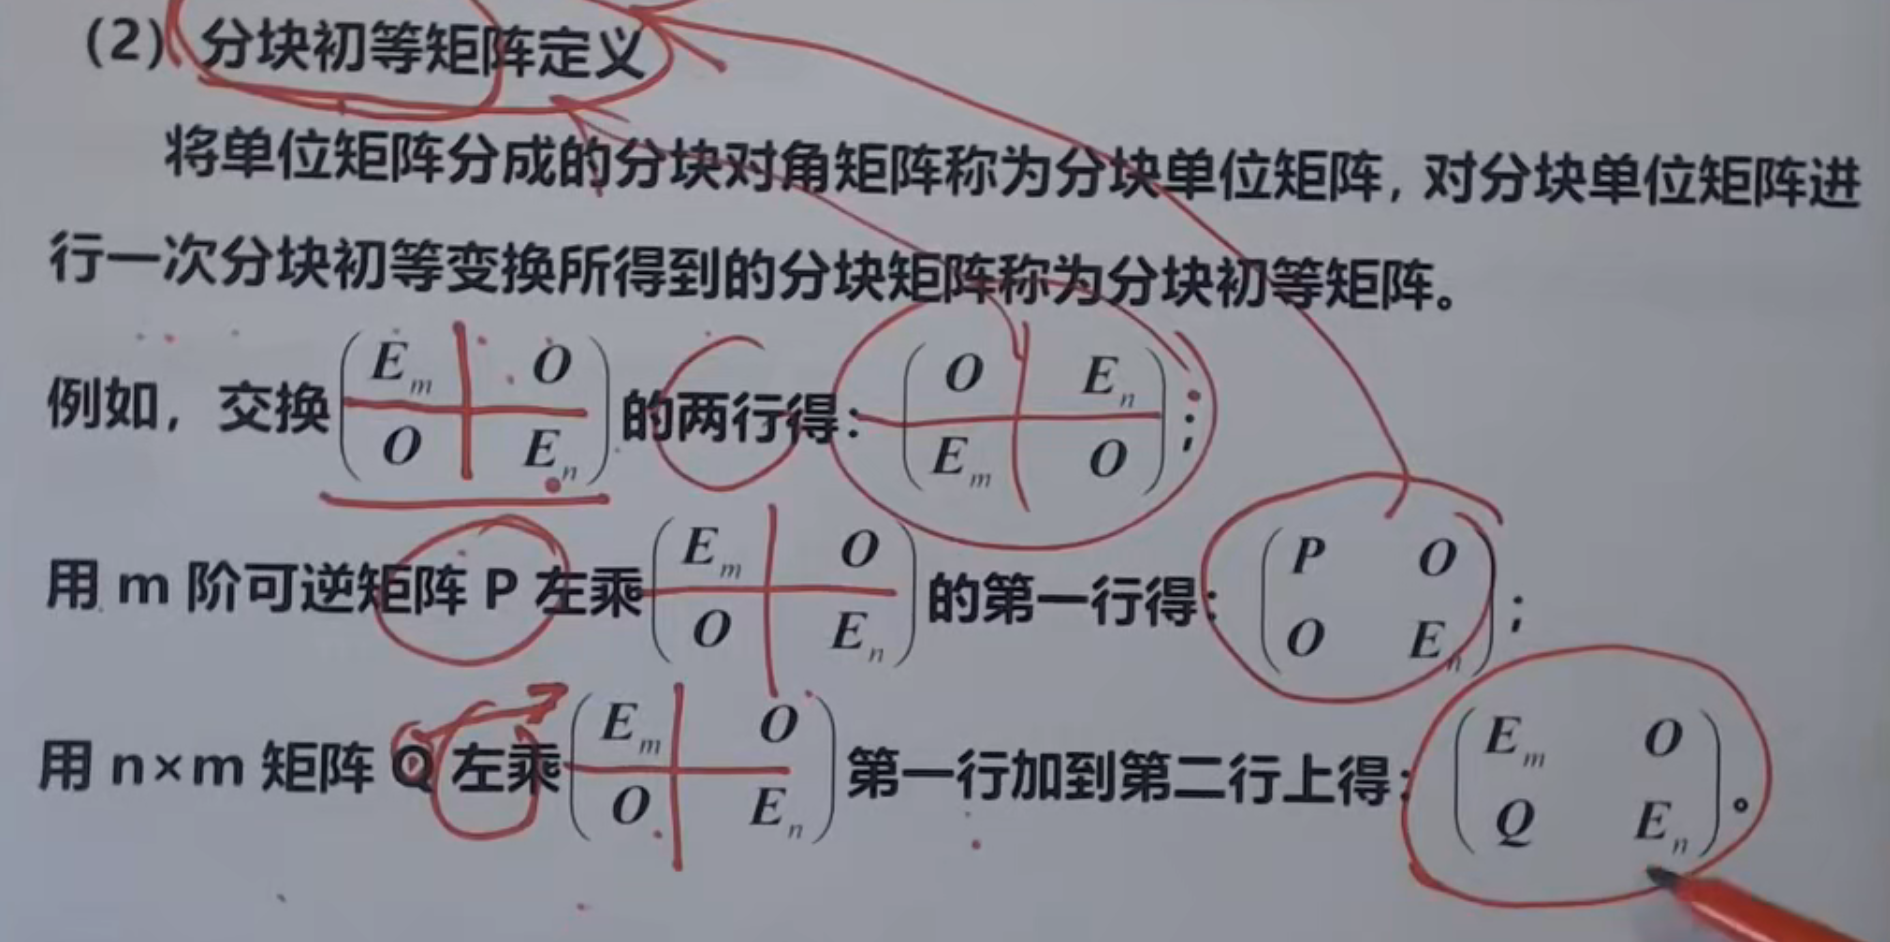 （2）分块初等矩阵定义
将单位矩阵分成的分块对角矩阵称为分块单位矩阵，对分块单位矩阵进
行一次分块初等变换所得到的分块矩阵称为分块初等矩阵。
例如，交换(E_m O; O E_n)的两行得：(O E_n; E_m O)；
用 m 阶可逆矩阵 P 左乘(E_m O; O E_n)的第一行得：(P O; O E_n)；
用 n×m 矩阵 Q 左乘(E_m O; O E_n)第一行加到第二行上得：(E_m O; Q E_n)。